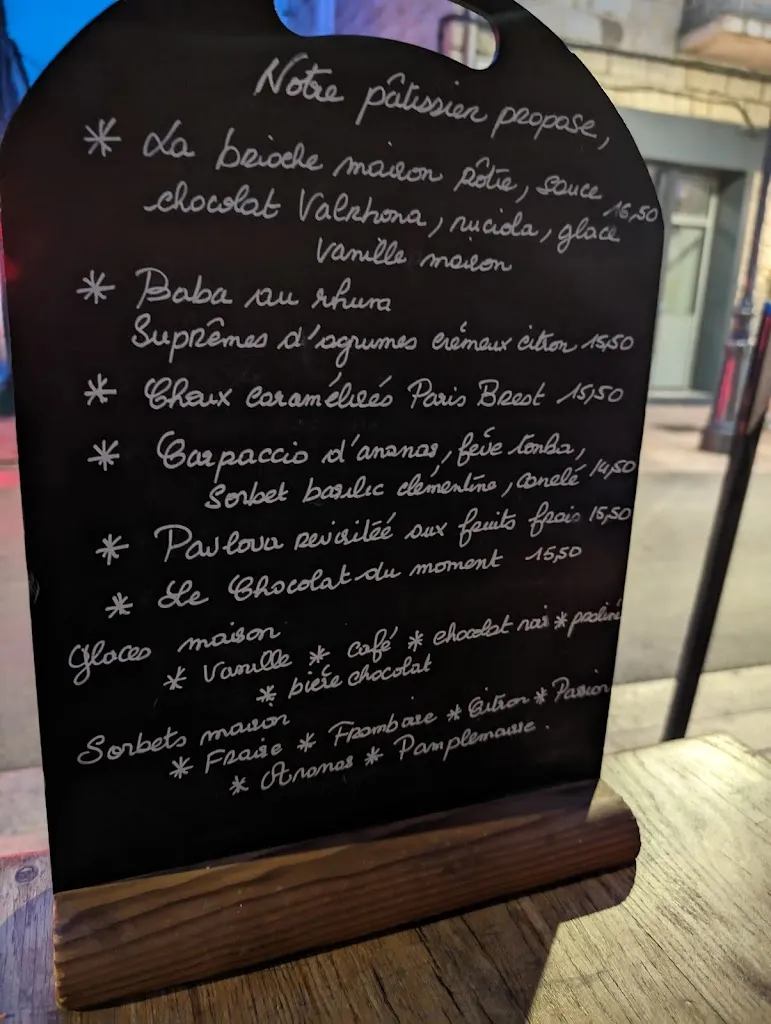 Notre pâtissier propose,
* La brioche maison rôtie, sauce
chocolat Valrhona, ruciola, glace 16,50
vanille maison
* Baba au rhum
Suprêmes d'agrumes crémeux citron 15,50
* Choux caramélisés Paris Brest 15,50
* Carpaccio d'ananas, fève tonka,
Sorbet basilic clémentine, canelé 14,50
* Pavlova revisitéé aux fruits frais 15,50
* Le Chocolat du moment 15,50
Glaces maison
* Vanille * café * chocolat noir * praliné
* bière chocolat
Sorbets maison
* Fraise * Framboise * Citron * Passion
* Ananas * Pamplemousse.